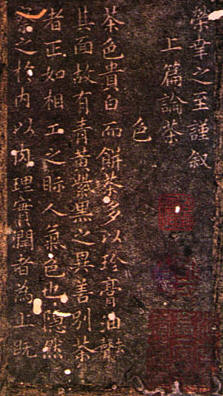 榮幸之至謹叙
上篇論茶
色
茶色貴白而餅茶多以珍膏油去聲
其面故有青黃紫黑之異善別茶
者正如相工之眎人氣色也隱然
之於内以肉理實潤者為上既